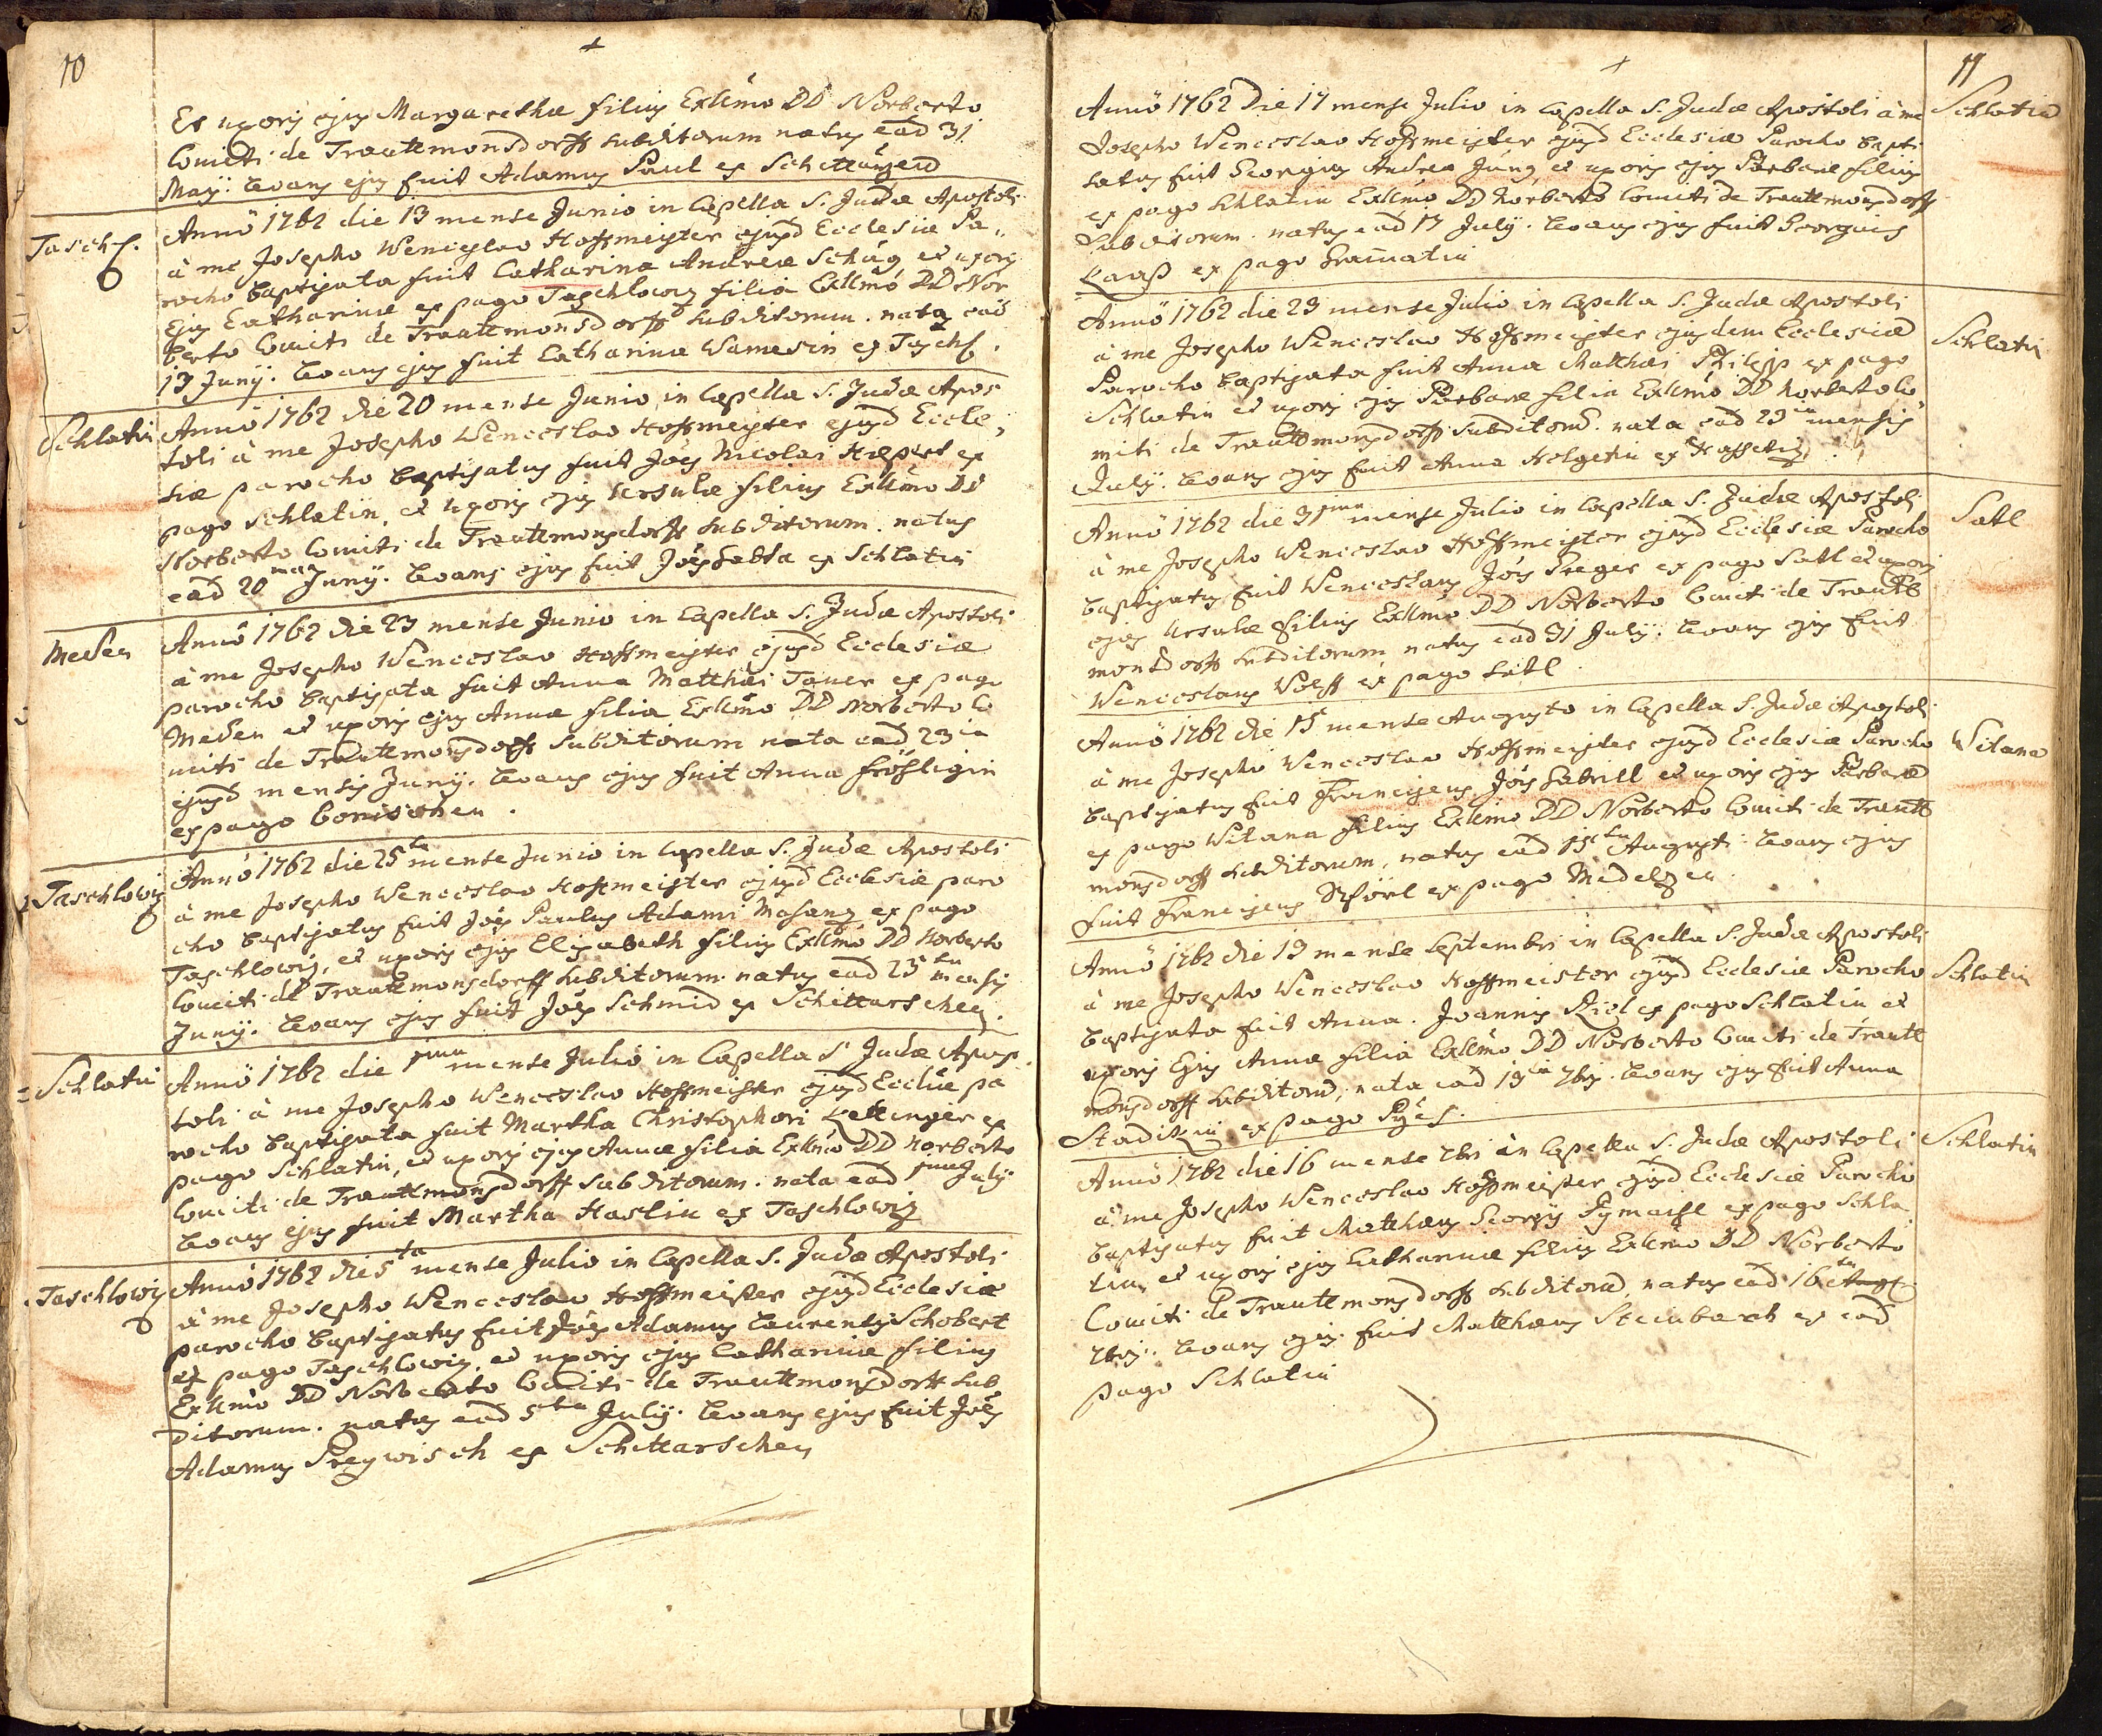 10
Et uxoris ejus Margarethæ filius Exllmo DD Norberto
Comiti de Trauttmonsdorff subditorum natus ead 31
Maÿ. Levans ejus fuit Adamus Paul ex
Taschl.
Annô 1762 die 13 mense Junio in Capella S. Judæ Apostoli
à me Josepho Wenceslao Hoffmeister ejusd Ecclesiæ Pa„
rocho baptizata fuit Catharina Andreæ Schüg et uxoris
Ejus Catharinæ ex pago Taschlowiz filia Exllmô DD Nor
berto Comiti de Trauttmonsdorff subditorum. nata ead
13 Junÿ. Levans ejus fuit Catharina Wamesin ex Taschl.
Schlatin
Annô 1762 die 20 mense Junio in Capella S. Judæ Apos
toli à me Josepho Wenceslao Hoffmeister ejusd Eccle„
siæ parocho baptizatus fuit Jôes Nicolai Hiepert ex
pago Schlatin, et uxoris ejus Ursulæ filius Exllmo DD
Norberto Comiti de Trauttmonsdorff subditorum. natus
ead 20 Junÿ. Levans ejus fuit Jôes Sabta ex Schlatin
Meden
Annô 1762 die 23 mense Junio in Capella S. Judæ Apostoli
à me Josepho Wenceslao Hoffmeister ejusd Ecclesiæ
parocho baptizata fuit Anna Matthæi Taner ex pago
Meden et uxoris ejus Annæ filia Exllmo DD Norberto Co
miti de Trauttmonsdorff subditorum nata ead 23ia
ejusd mensis Junÿ. Levans ejus fuit Anna Fröhligin
ex pago Conischen.
Taschlowiz
Annô 1762 die 25ta mense Junio in Capella S. Judæ Apostoli
à me Josepho Wenceslao Hoffmeister ejusd Ecclesiæ paro
cho baptizatus fuit Jôes Paulus Adami Mahang ex pago
Taschlowiz, et uxoris ejus Elisabeth filius Exllmô DD Norberto
Comiti de Trauttmonsdorff subditorum. natus ead 25ta mensis
Junÿ. Levans ejus fuit Jôes Schmid ex Schittarschen.
Schlatin
Annô 1762 die 1ma mense Juliô in Capella S. Judæ Apos
toli à me Josepho Wenceslao Hoffmeister ejusd Eccliæ pa
rocho baptizata fuit Martha Christophori Kettinger ex
pago Schlatin, et uxoris ejus Annæ filia Exllmo DD Norberto
Comiti de Trauttmonsdorff subditorum. nata ead 1ma July
Levans ejus fuit Martha Haslin ex Taschlowiz
Taschlowiz
Annô 1762 die 5ta mense Julio in Capella S. Judæ Apostoli
à me Josepho Wenceslao Hoffmeister ejusd Ecclesiæ
parocho baptizatus fuit Jôes Adamus Laurentÿ Schobert
ex pago Taschlowiz, et uxoris ejus Catharinæ filius
Exllmô DD Norberto Comiti de Trauttmonsdorff sub
ditorum. natus ead 5ta Julÿ. Levans ejus fuit Jôes
Adamus Preywisch ex Schittarschen
11
Annô 1762 Die 17 mense Julio in Capella S. Judæ Apostoli à me
Schlatin
Josepho Wenceslao Hoffmeister ejusd Ecclesiæ Parocho bapti
satus fuit Georgius Andreæ Jung, et uxoris ejus Barbaræ filius
ex pago Schlatin Exllmô DD Norberto Comiti de Trauttmonsdorff
Subditorum. natus ead 17 Julÿ. Levans ejus fuit Georgius
Laaß ex pago
Annô 1762 die 23 mense Julio in Capella S. Judæ Apostoli
Schlatin
à me Josepho Wenceslao Hoffmeister ejusdem Ecclesiæ
Parocho baptizata fuit Anna Matthæi Philipp ex pago
Schlatin et uxoris ejus Barbaræ filia Exllmô DD Norberto Co„
miti de Trauttmonsdorff subditorū. nata ead 23ia mensis
Julÿ. Levans ejus fuit Anna Holgetin ex
Annô 1762 die 31ma mense Julio in Capella S. Judæ Apostoli
Satl
à me Josepho Wenceslao Hoffmeister ejusd Ecclesiæ Parocho
baptizatus fuit Wenceslaus Jôis Preger ex pago Satl et uxoris
ejus Ursulæ filius Exllmô DD Norberto Comiti de Trautt
monsdorff subditorum natus ead 31 Julÿ. Levans ejus fuit
Wenceslaus Wolff ex pago Satl.
Annô 1762 die 15 mense Augusto in Capella S. Judæ Apostoli
Witana
à me Josepho Wenceslao Hoffmeister ejusd Ecclesiæ Parocho
baptizatus fuit Franciscus Jôis Gabrill et uxoris ejus Barbaræ
ex pago Witana filius Exllmô DD Norberto Comiti de Trautt
monsdorff subditorum, natus ead 15ta Augusti. Levans ejus
fuit Franciscus ex pago Medelzen.
Annô 1762 die 19 mense Septembri in Capella S. Judæ Apostoli
Schlatin
à me Josepho Wenceslao Hoffmeister ejusd Ecclesiæ Parocho
baptizata fuit Anna. Joannis Riel ex pago Schlatin et
uxoris Ejus Annæ filia Exllmô DD Norberto Comiti de Trautt
monsdorff subditorū, nata ead 19ta 7bris. Levans ejus fuit Anna
ex pago
Annô 1762 die 16 mense 7bri in Capella S. Judæ Apostoli
Schlatin
à me Josepho Wenceslao Hoffmeister ejusd Ecclesiæ Parocho
baptizatus fuit Matthæus Georgÿ ex pago Schla
tin, et uxoris ejus Catharinæ filius Exllmô DD Norberto
Comiti de Trauttmonsdorff subditorū, natus ead 16ta
7bris. Levans ejus fuit Matthæus Steinbach ex ead
pago Schlatin